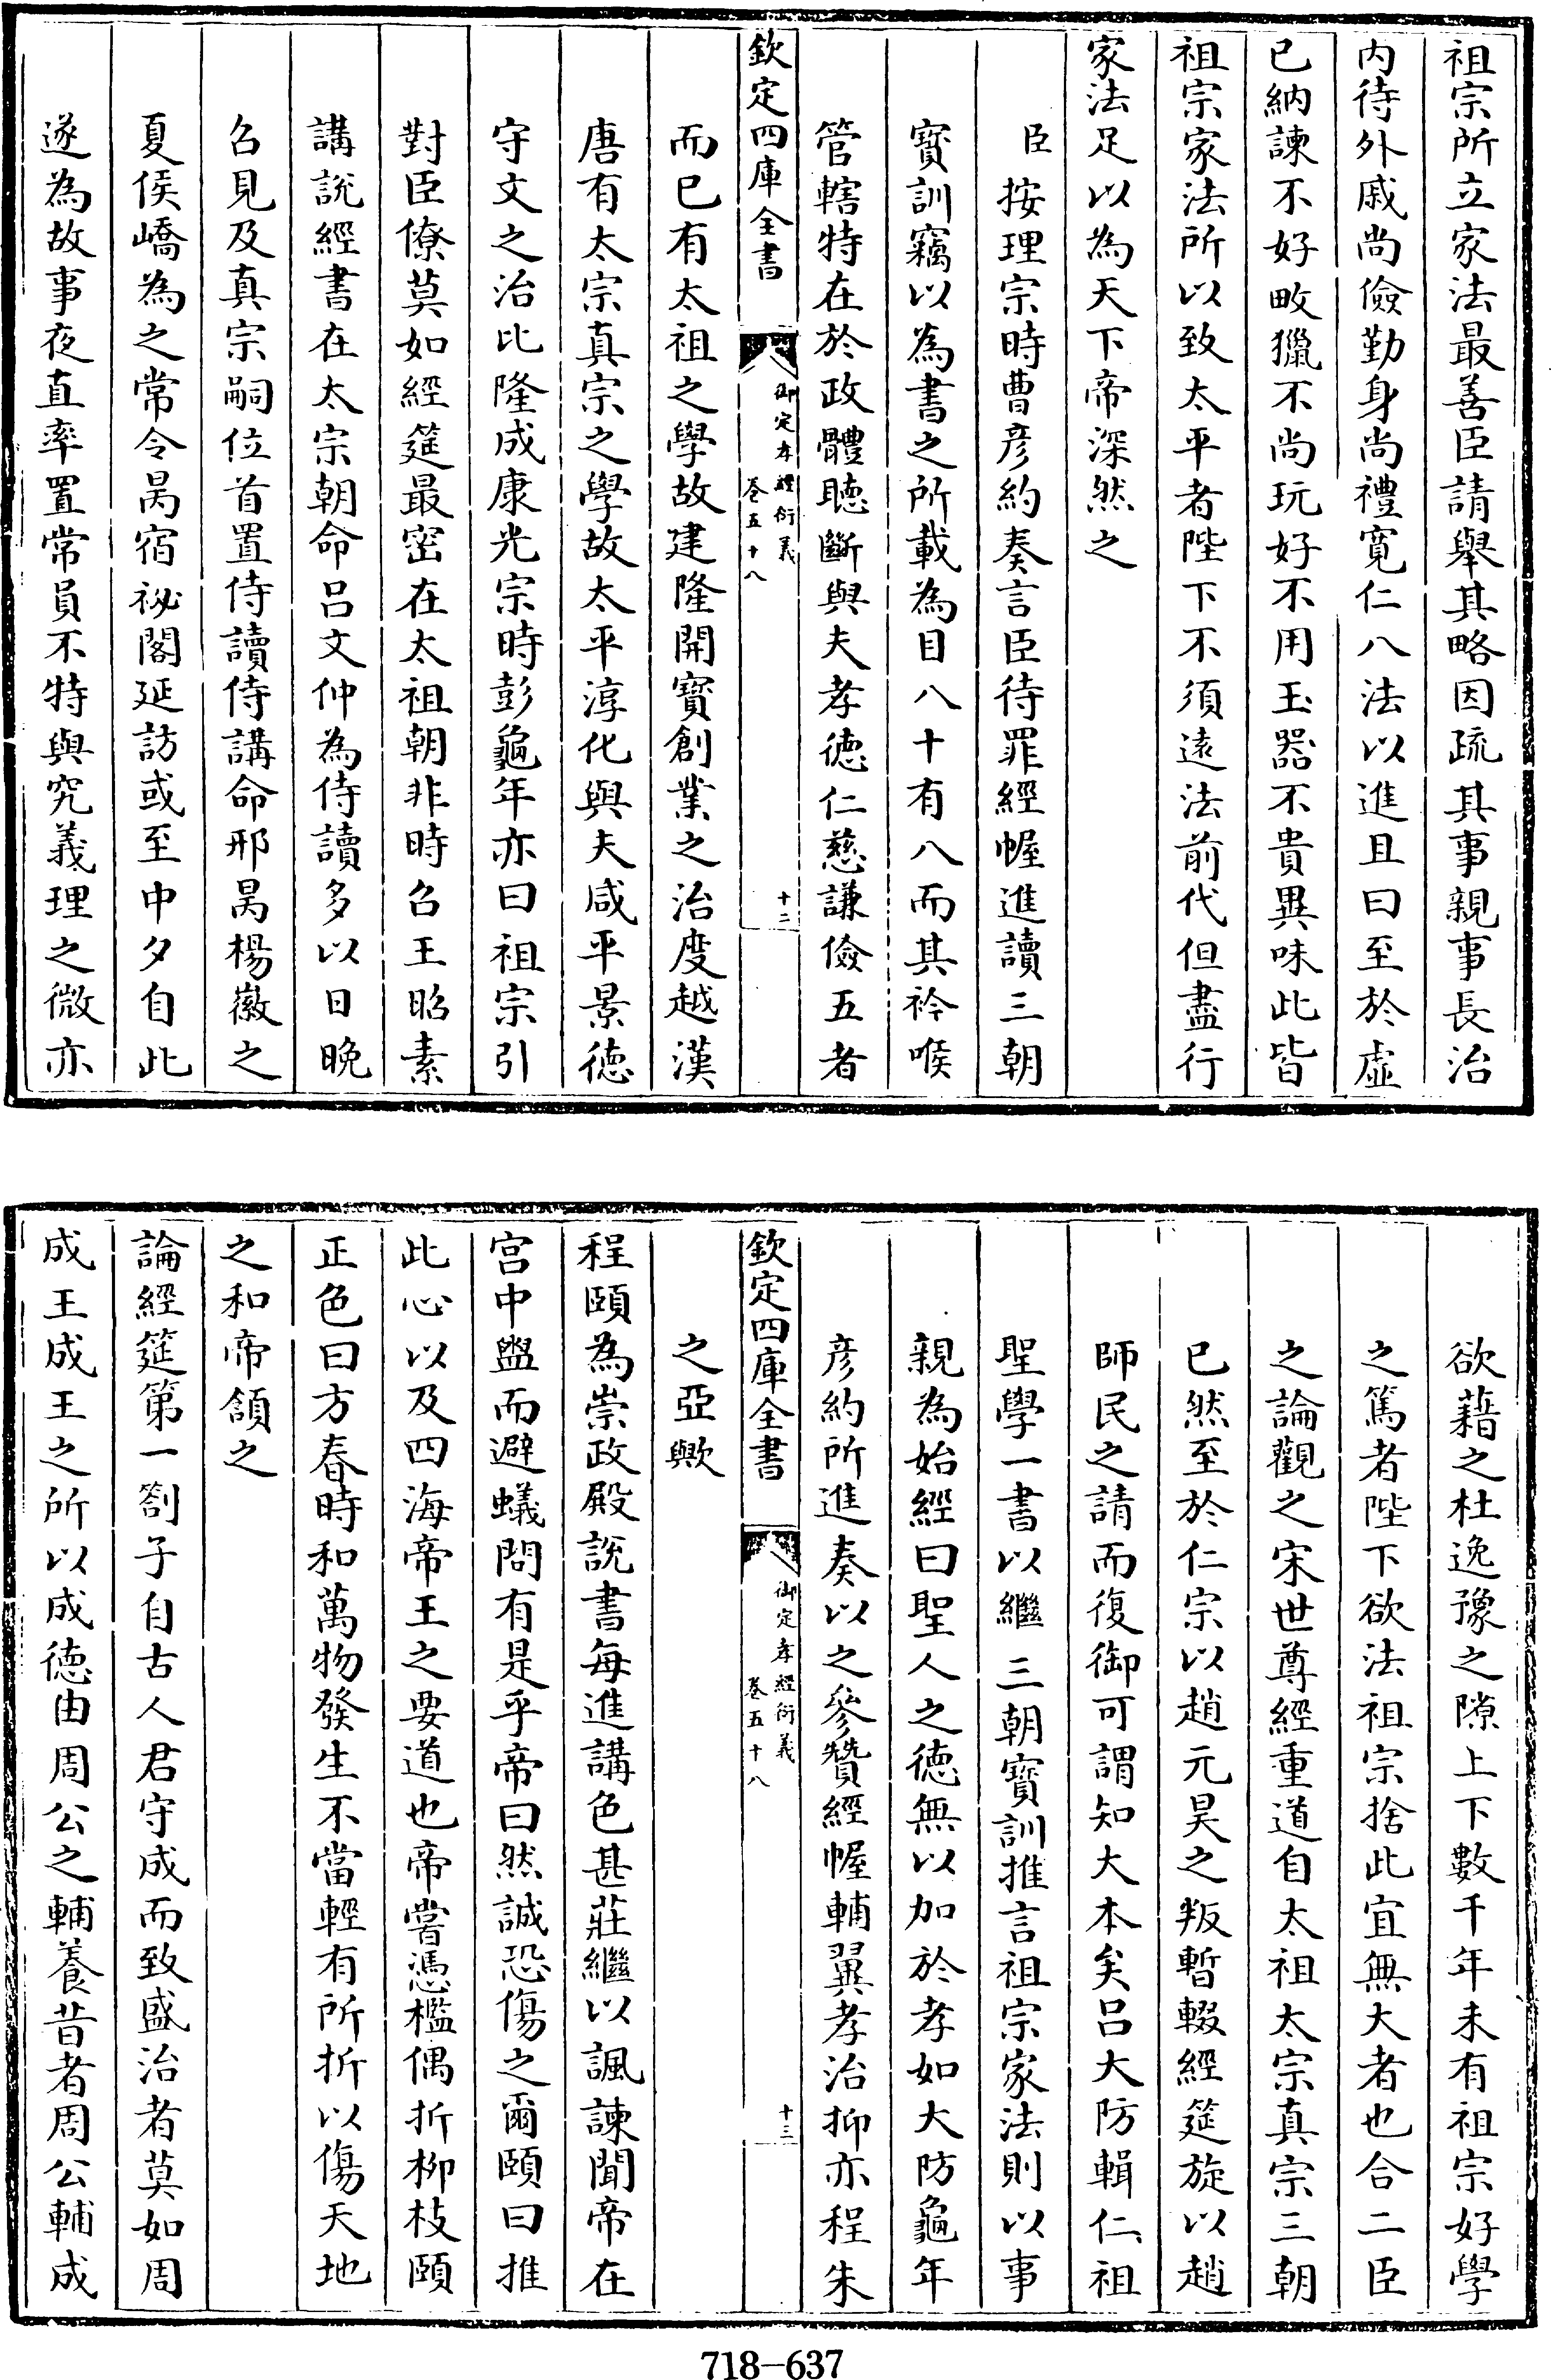 祖宗所立家法最善臣請舉其略因疏其事親事長治
內待外戚尚儉勤身尚禮寛仁八法以進且曰至於虛
已納諫不好畋獵不尚玩好不用玉器不貴異味此皆
祖宗家法所以致太平者陛下不須逺法前代但盡行
家法足以為天下帝深然之
臣按理宗時曹彦約奏言臣待罪經幄進讀三朝
寳訓竊以為書之所載為目八十有八而其衿喉
管轄特在於政體聽斷與夫孝徳仁慈謙儉五者
欽定四庫全書
御定孝經衍義
卷五十八
十二
而已有太祖之學故建隆開寳創業之治度越漢
唐有太宗真宗之學故太平淳化與夫咸平景徳
守文之治比隆成康光宗時彭龜年亦曰祖宗引
對臣僚莫如經筵最密在太祖朝非時召王昭素
講說經書在太宗朝命呂文仲為侍讀多以日晚
召見及真宗嗣位首置侍讀侍講命邢昺楊徽之
夏侯嶠為之常令昺宿祕閣延訪或至中夕自此
遂為故事夜直率置常員不特與究義理之微亦
欲藉之杜逸豫之隙上下數千年未有祖宗好學
之篤者陛下欲法祖宗捨此宜無大者也合二臣
之論觀之宋世尊經重道自太祖太宗真宗三朝
已然至於仁宗以趙元昊之叛暫輟經筵旋以趙
師民之請而復御可謂知大本矣呂大防輯仁祖
聖學一書以繼三朝寳訓推言祖宗家法則以事
親為始經曰聖人之徳無以加於孝如大防龜年
彦約所進奏以之參贊經幄輔翼孝治抑亦程朱
欽定四庫全書
御定孝經衍義
卷五十八
十三
之亞歟
程頤為崇政殿說書每進講色甚莊繼以諷諫聞帝在
宫中盥而避蟻問有是乎帝曰然誠恐傷之爾頤曰推
此心以及四海帝王之要道也帝嘗憑檻偶折柳枝頤
正色曰方春時和萬物發生不當輕有所折以傷天地
之和帝頷之
論經筵第一劄子自古人君守成而致盛治者莫如周
成王成王之所以成徳由周公之輔養昔者周公輔成
718-637